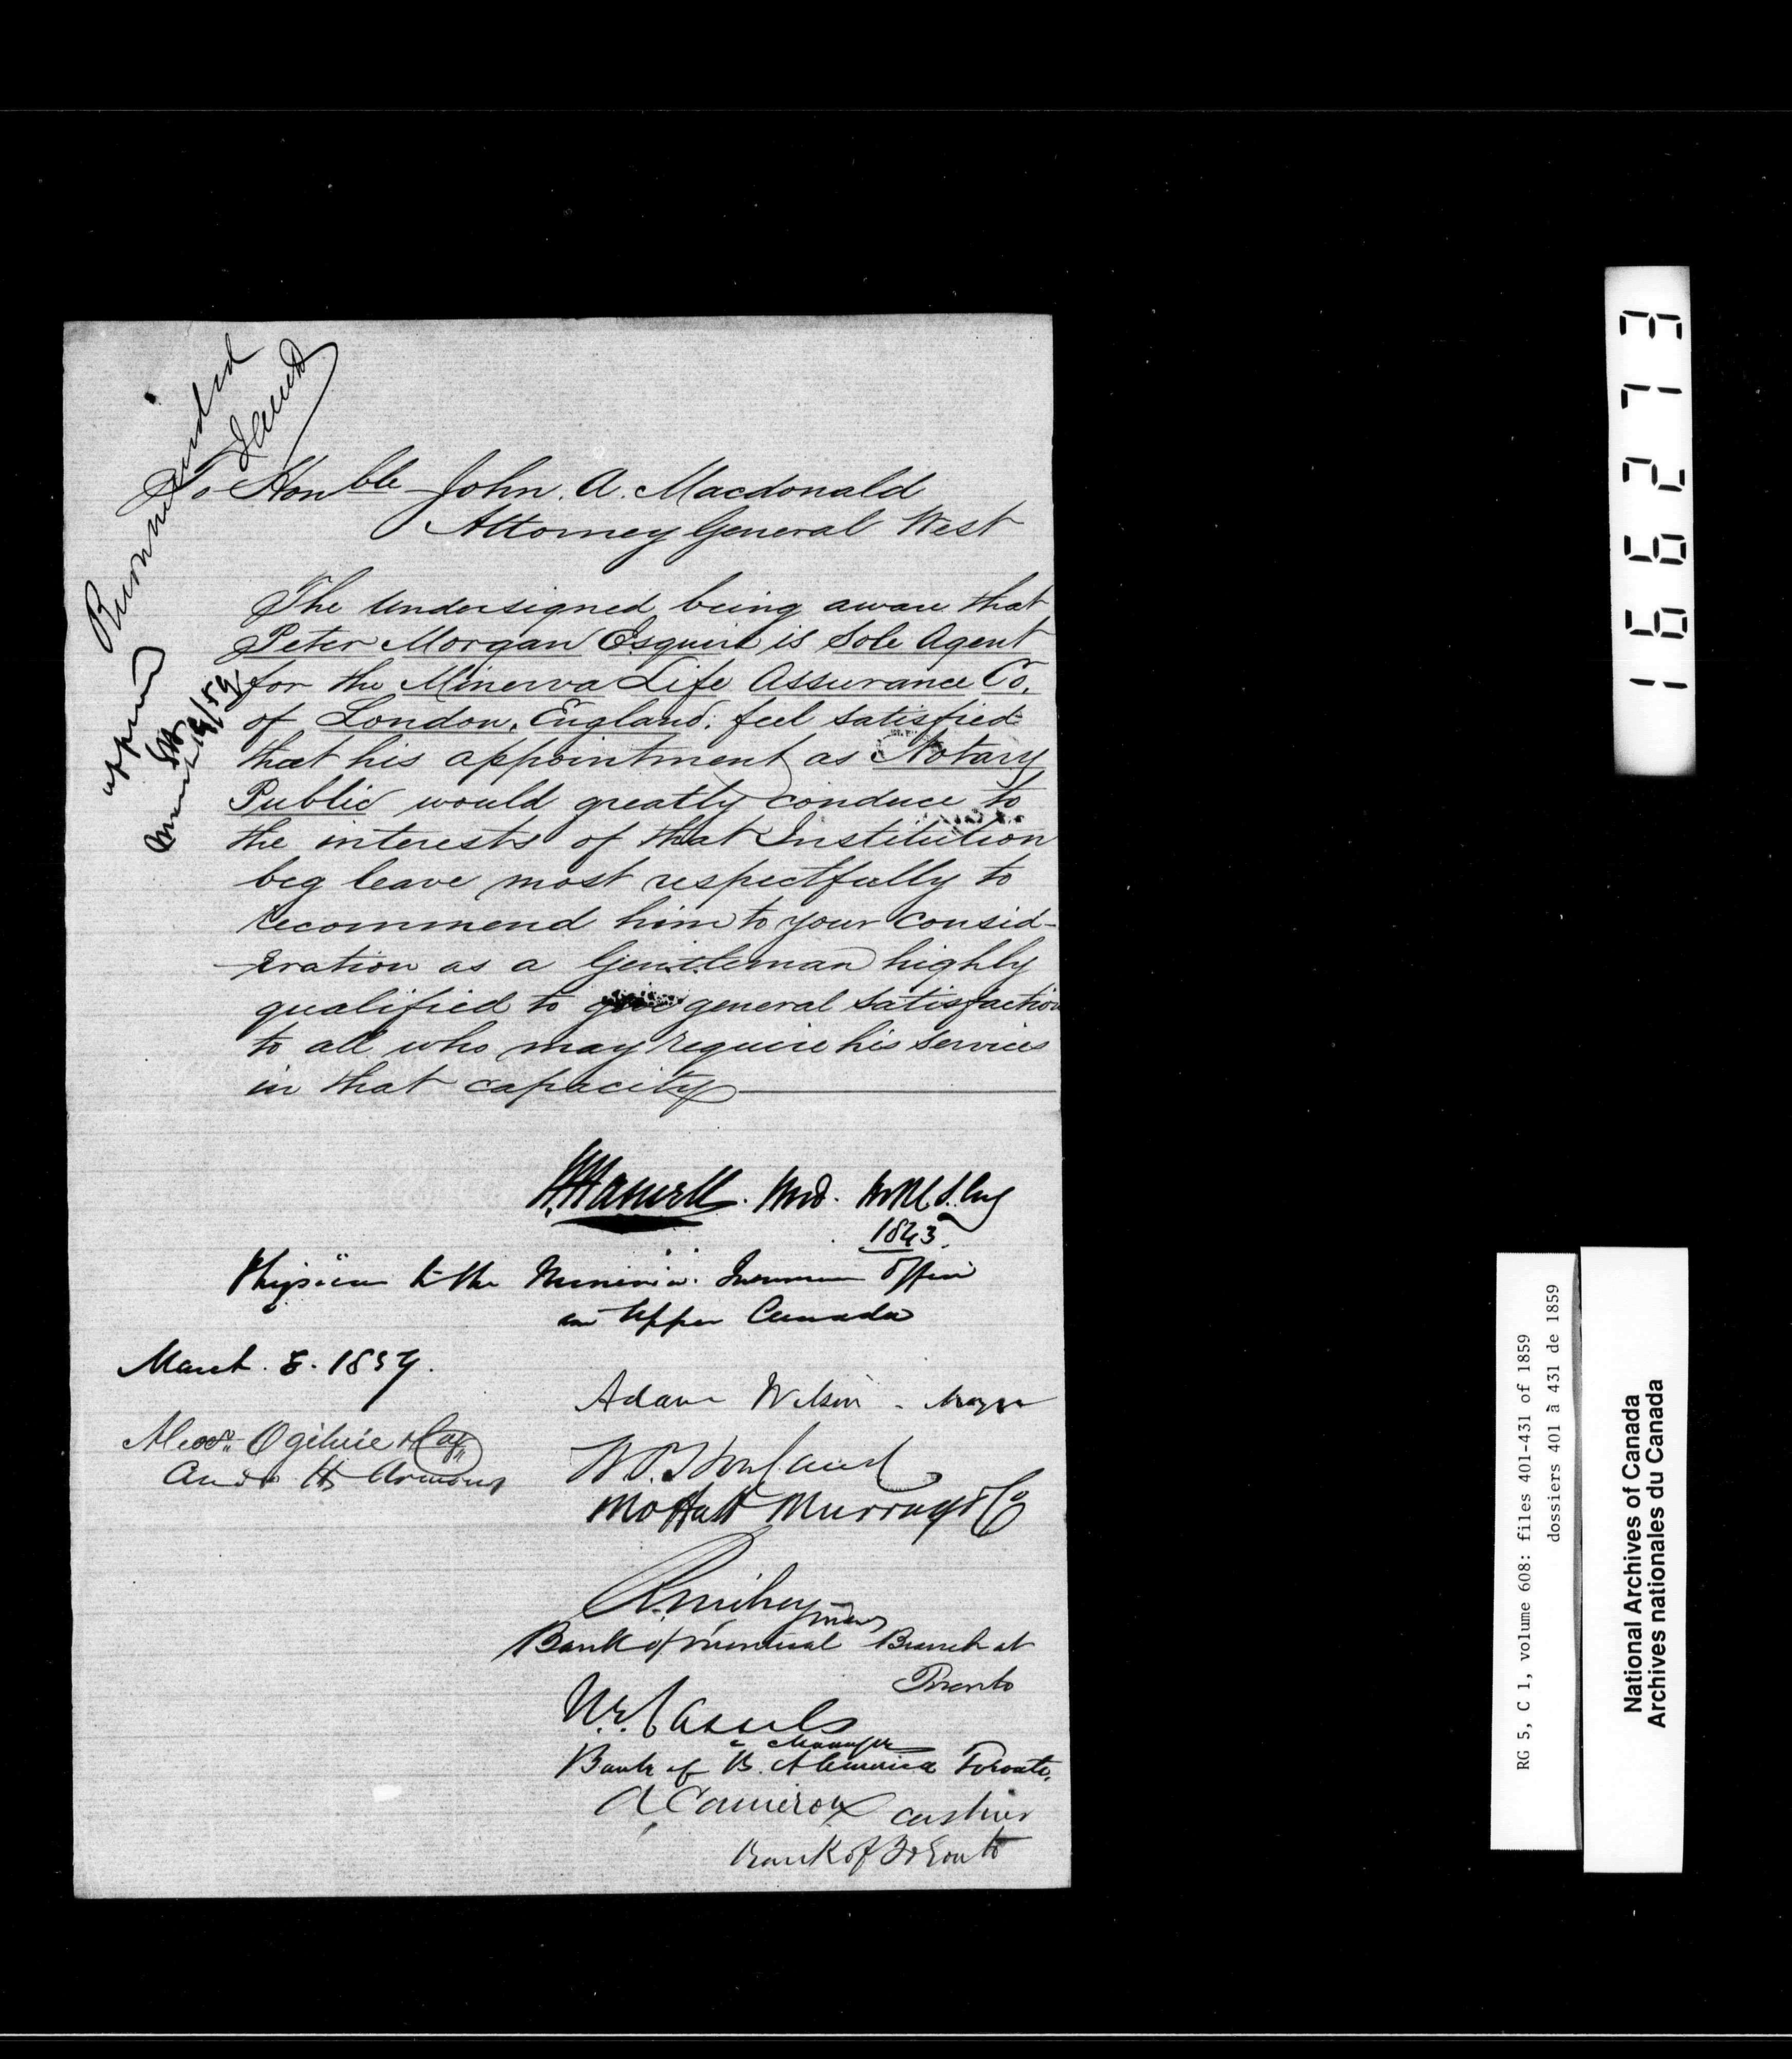 Recommended
To Honble John. A. Macdonald
Attorney General West
The Undersigned being aware that
Peter Morgan Esquire is Sole Agent
for the Minerva Life Assurance Co.
of London, England, feel satisfied
that his appointment as Notary
Public would greatly conduce to
the interests of that Institution
beg leave most respectfully to
recommend him to your consid-
-eration as a Gentleman highly
qualified to give general satisfaction
to all who may require his services
in that capacity
1843.
Physician to the Minerva Insurance Office
in Upper Canada
March. 8. 1859.
Adam Wilson - Mayor
Alexr. Ogilvie & Coy
W. P. Howland
Moffatt Murray & Co
Bank of Montreal Branch at
Toronto
W. Cassels
Manager
Bank of B. N America Toronto,
A Cameron cashier
Bank of Toronto
166273
RG 5, C 1, volume 608: files 401-431 of 1859
dossiers 401 à 431 de 1859
National Archives of Canada
Archives nationales du Canada